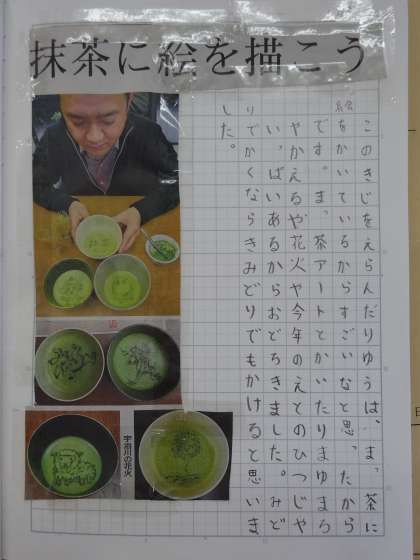 抹茶に絵を描こう
このきじをえらんだりゆうは、まっ茶に
絵をかいているからすごいなと思ったから
です。まっ茶アートとかいたりまゆまろ
やかえるや花火や今年のえとのひつじや
いっぱいあるからおどろきました。みど
りでかくならきみどりでもかけると思いま
した。
宇治川の花火